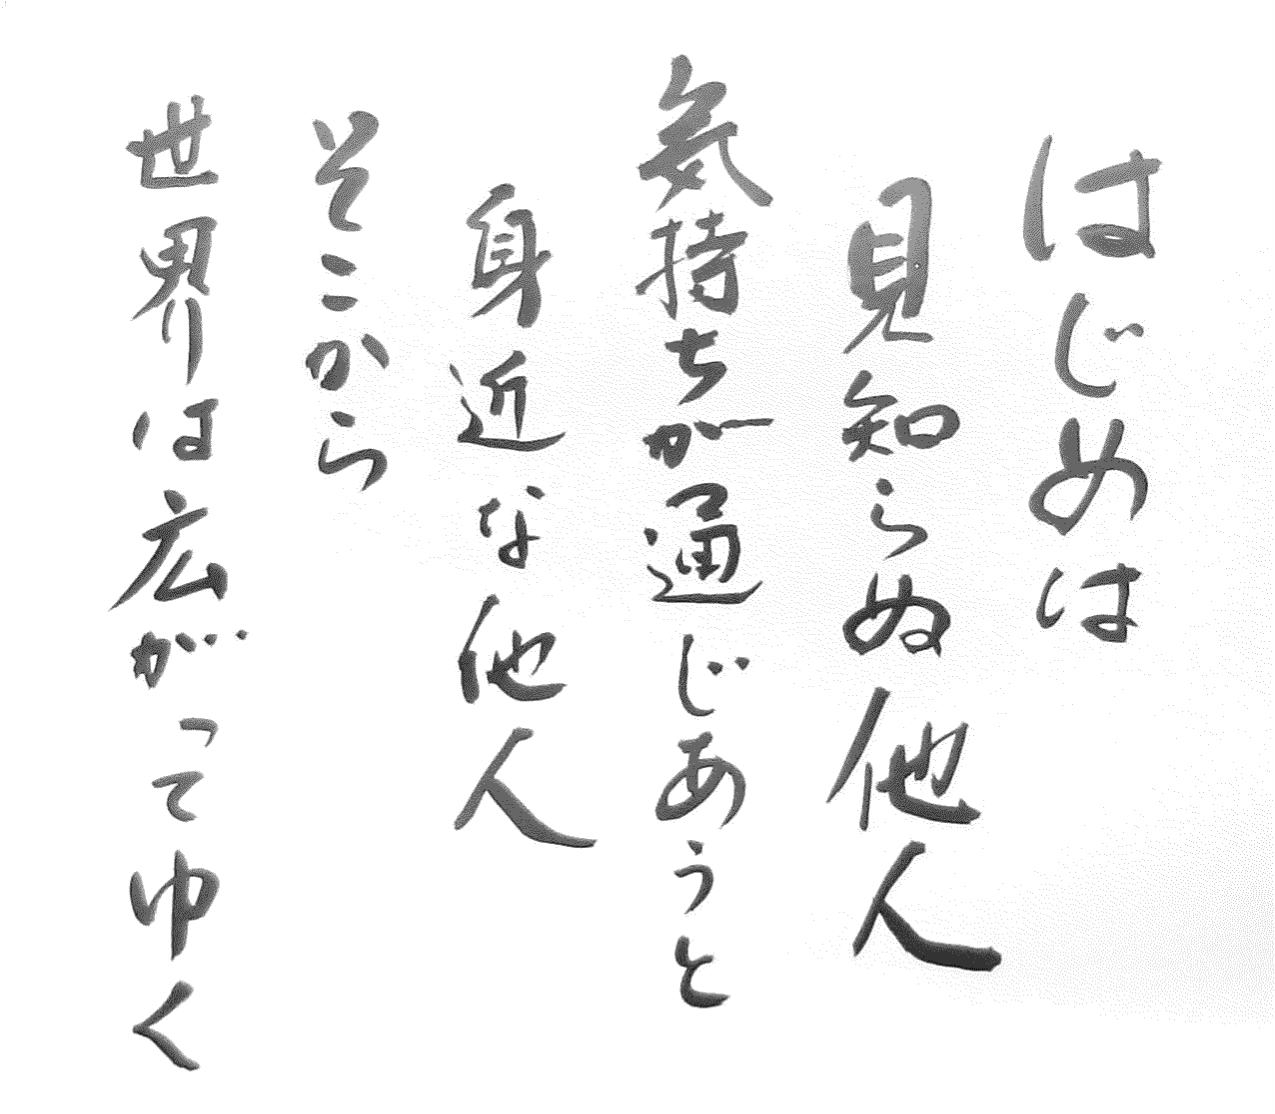 はじめは
見知らぬ他人
気持ちが通じあうと
身近な他人
そこから
世界は広がってゆく